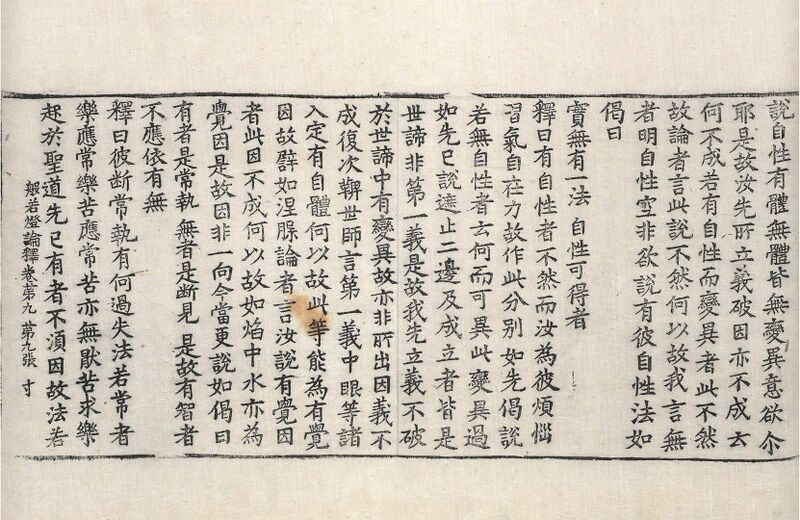 說自性有體無體皆無變異意欲尒
耶是故汝先所立義破因亦不成云
何不成若有自性而變異者此不然
故論者言此說不然何以故我言無
者明自性空非欲說有彼自性法如
偈曰
實無有一法 自性可得者
釋曰有自性者不然而汝為彼煩惱
習氣自在力故作此分別如先偈說
若無自性者云何而可異此變異過
如先已說遮止二邊及成立者皆是
世諦非第一義是故我先立義不破
於世諦中有變異故亦非所出因義不
成復次鞞世師言第一義中眼等諸
入定有自體何以故此等能為有覺
因故譬如涅槃論者言汝說有覺因
者此因不成何以故如焰中水亦為
覺因是故因非一向今當更說如偈曰
有者是常執 無者是斷見 是故有智者
不應依有無
釋曰彼斷常執有何過失法若常者
樂應常樂苦應常苦亦無厭苦求樂
起於聖道先已有者不湏因故法若
般若燈論釋卷第九 第九張 寸